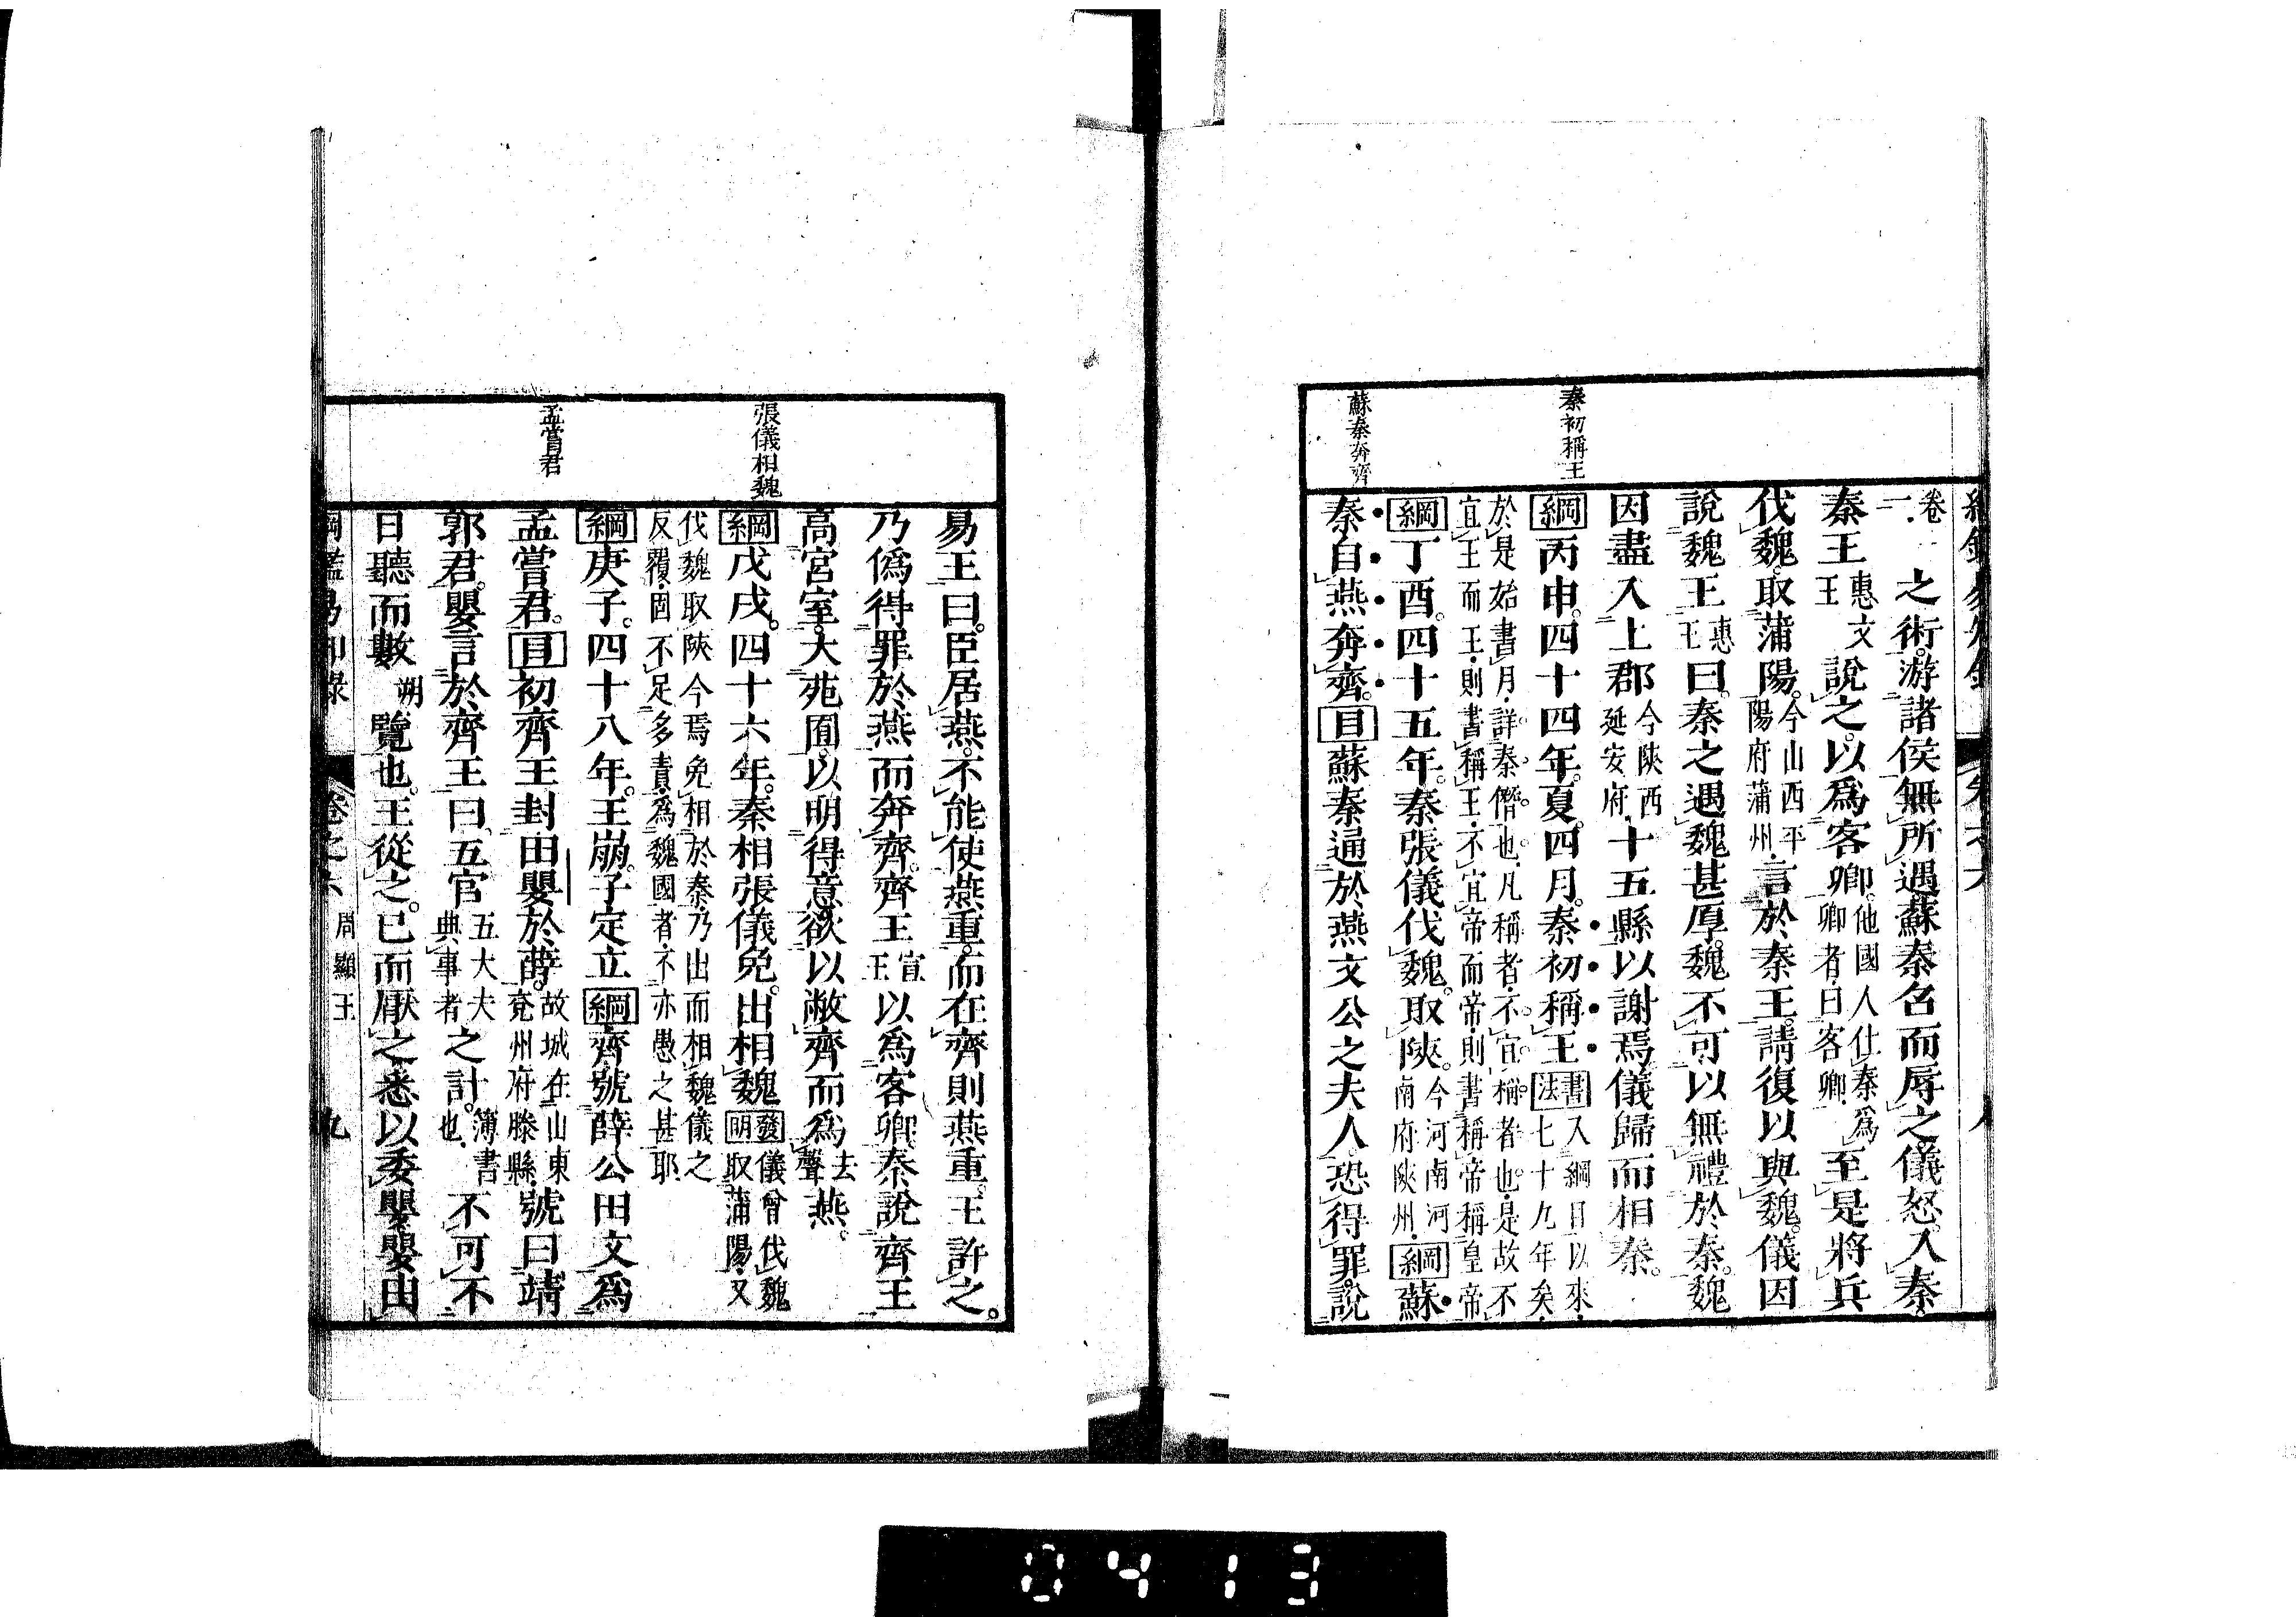 秦初稱王
蘇秦奔齊
卷二之術。游諸侯無所遇。蘇秦召而辱之。儀怒。入秦。
秦王惠文王說之。以爲客卿。他國人仕秦爲卿者。曰客卿。至是將兵
伐魏。取蒲陽。今山西平陽府蒲州。言於秦王。請復以與魏。儀因
說魏王惠王曰。秦之遇魏甚厚。魏不可以無禮於秦。魏
因盡入上郡今陝西延安府。十五縣以謝焉。儀歸而相秦。
綱丙申。四十四年。夏。四月。秦初稱王書法入綱目以來。七十九年矣。
於是始書月。詳秦僭也。凡稱者。不宜稱者也。是故不
宜王而王。則書稱王。不宜帝而帝。則書稱帝。帝稱皇帝
綱丁酉。四十五年。秦張儀伐魏。取陝。今河南河南府陝州。綱蘇
秦自燕奔齊。目蘇秦通於燕文公之夫人。恐得罪。說
張儀相魏
孟嘗君
易王曰。臣居燕。不能使燕重。而在齊則燕重。王許之。
乃僞得罪於燕而奔齊。齊王宣王以爲客卿。秦說齊王
高宮室。大苑囿。以明得意。欲以敝齊而爲去聲燕。
綱戊戌。四十六年。秦相張儀免。出相魏發明儀曾伐魏取蒲陽。又
伐魏取陝今焉免相於秦。乃出而相魏儀之
反覆。固不足多責。爲魏國者。不亦愚之甚耶
綱庚子。四十八年。王崩。子定立綱齊號薛公田文爲
孟嘗君。目初齊王封田嬰於薛。故城在山東兗州府滕縣。號曰靖
郭君。嬰言於齊王曰。五官五大夫典事者之計。簿書也。不可不
日聽而數朔覽也。王從之。已而厭之。悉以委嬰。嬰由
綱鑑易知錄 卷之六 周顯王 九